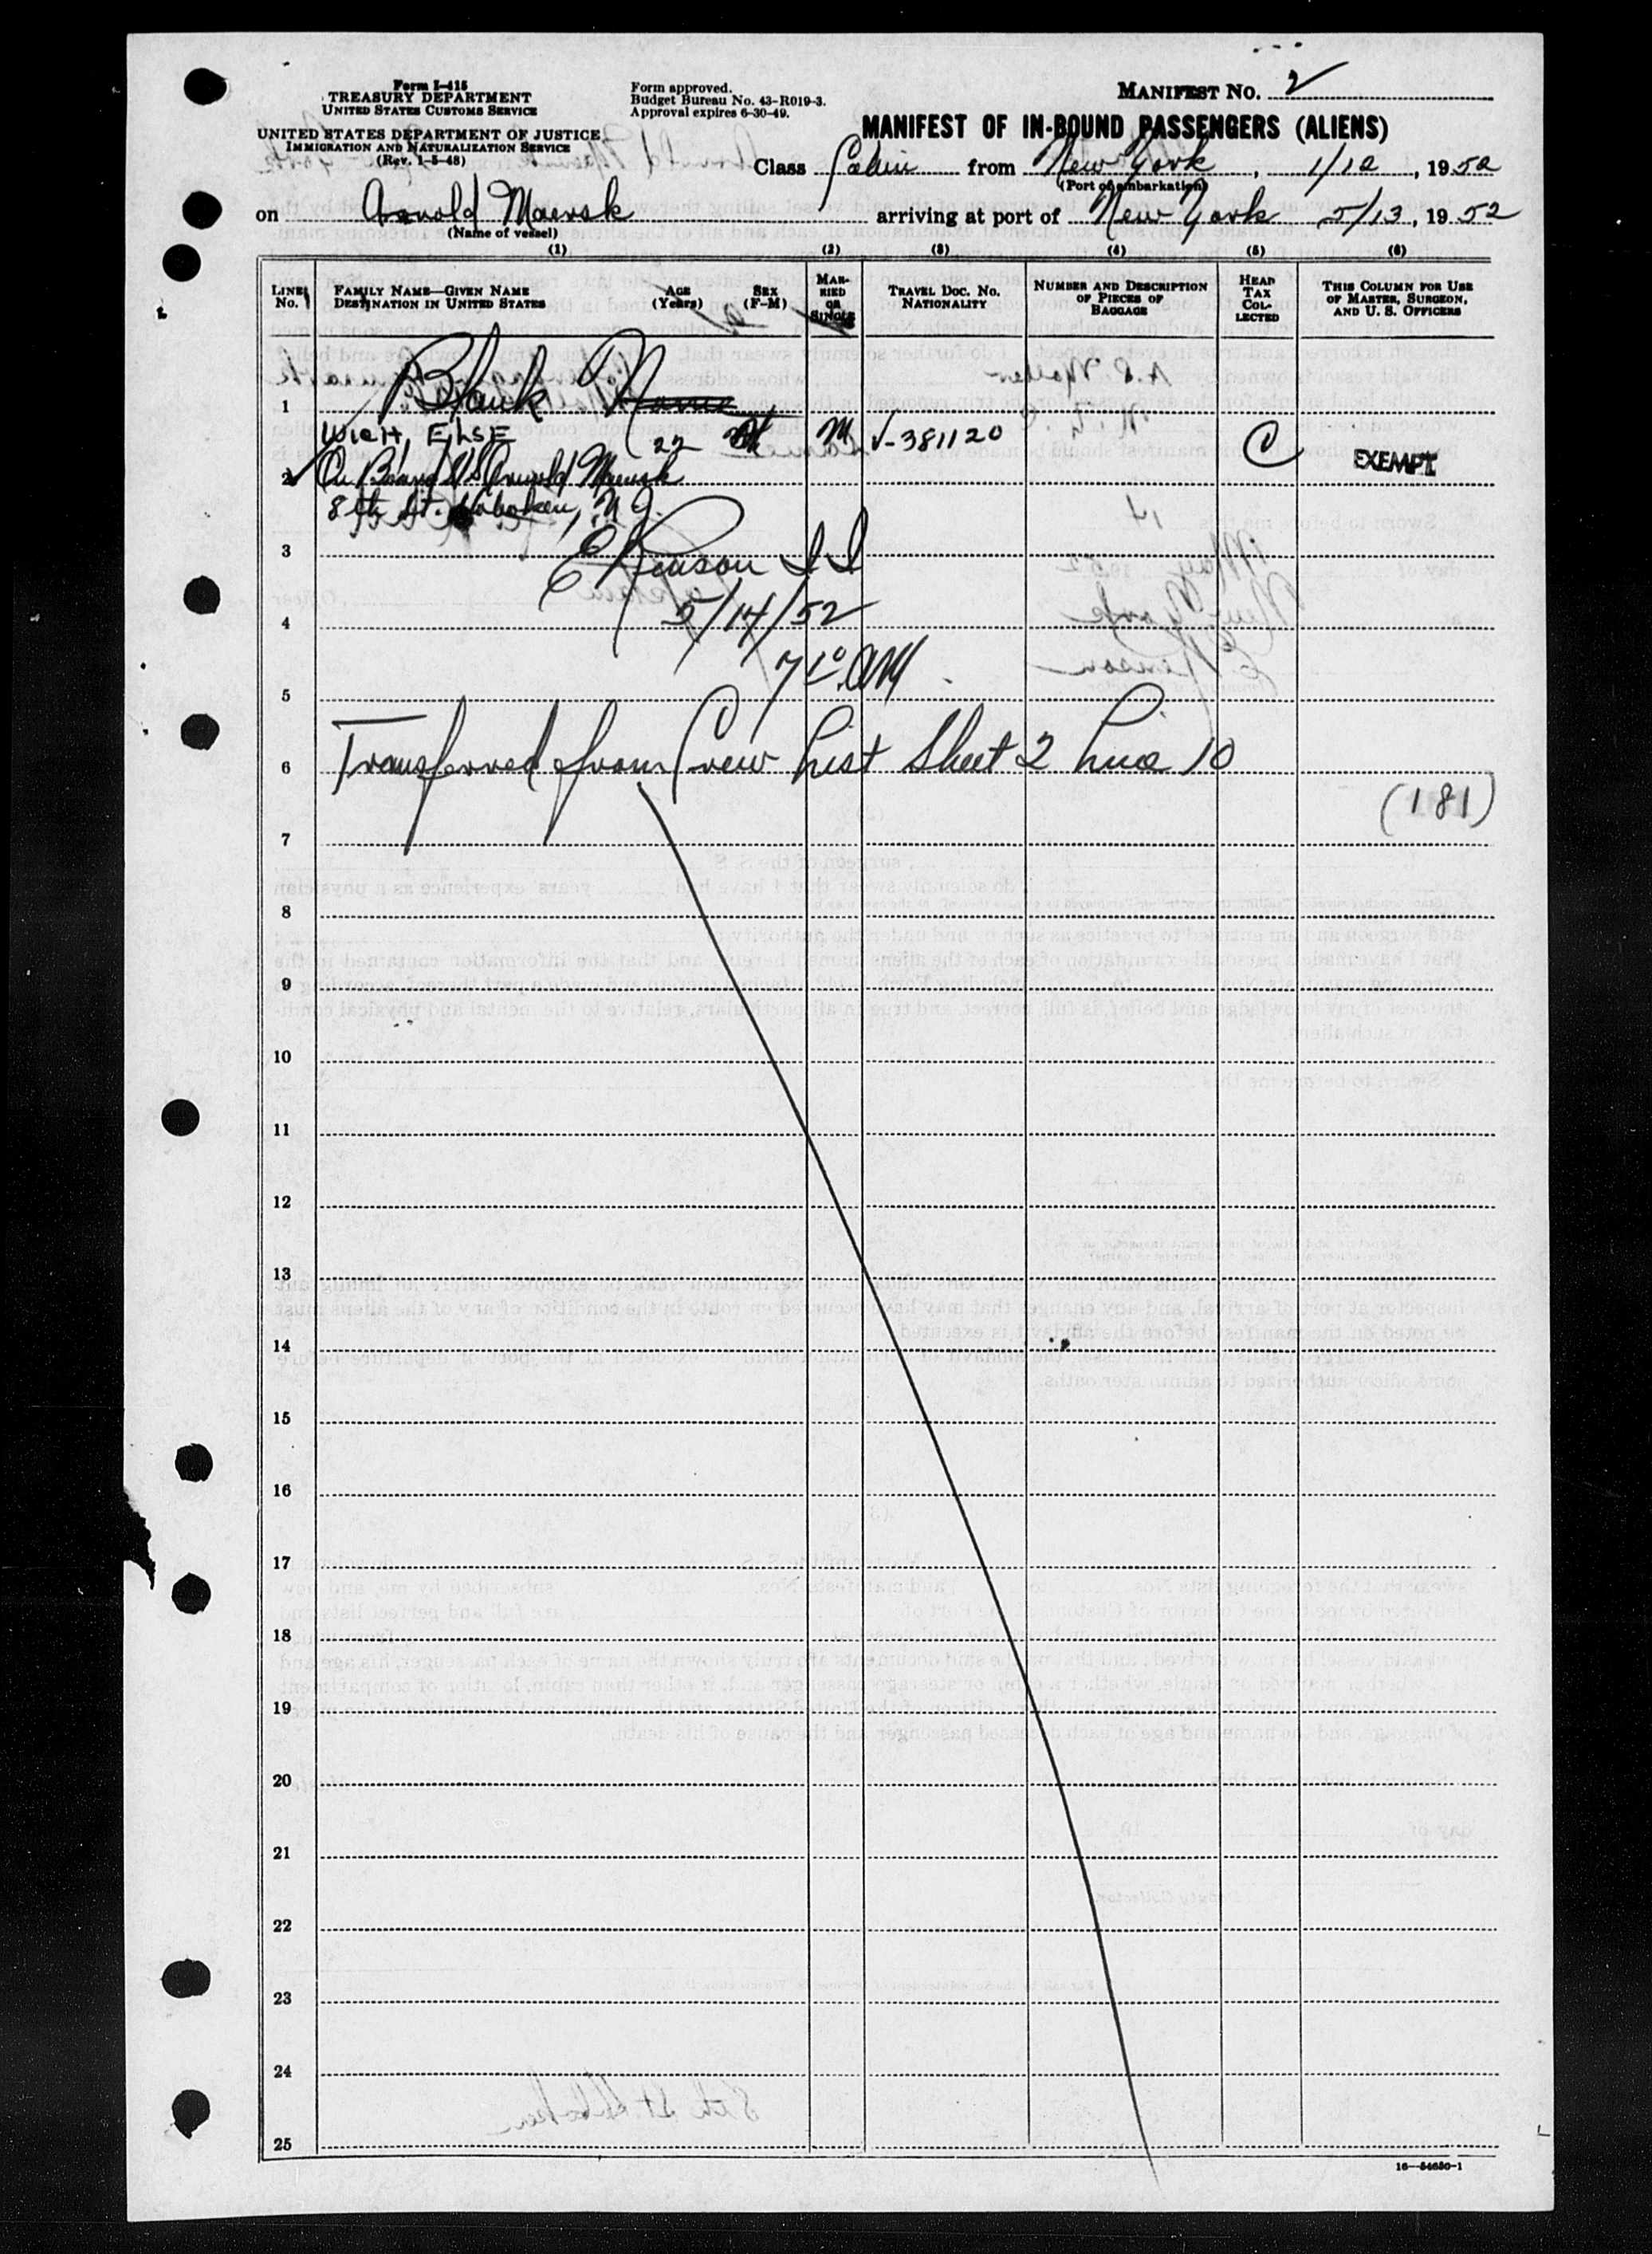 Form I-415
TREASURY DEPARTMENT
UNITED STATES CUSTOMS SERVICE
UNITED STATES DEPARTMENT OF JUSTICE
IMMIGRATION AND NATURALIZATION SERVICE
(Rev. 1-5-48)
Form approved.
Budget Bureau No. 43-R019-3.
Approval expires 6-30-49.
MANIFEST NO. 2
MANIFEST OF IN-BOUND PASSENGERS (ALIENS)
Class Cabin from New York, 1/12, 1952
(Port of embarkation)
on Arnold Maersk arriving at port of New York 5/13, 1952
(Name of vessel)
(1) (2) (3) (4) (5) (6)
LINE No. FAMILY NAME—GIVEN NAME DESTINATION IN UNITED STATES AGE (Years) SEX (F-M) MARRIED OR SINGLE TRAVEL DOC. NO. NATIONALITY NUMBER AND DESCRIPTION OF PIECES OF BAGGAGE HEAD TAX COLLECTED THIS COLUMN FOR USE OF MASTER, SURGEON, AND U. S. OFFICERS
1 Blank
WICH, ELSE 22 M V-381120 C EXEMPT
2 On Board Arnold Maersk
8th St. Hoboken, N.J.
3 E Renson
4 5/14/52
7 10 AM
5
6 Transferred from Crew List Sheet 2 Line 10
(181)
7
8
9
10
11
12
13
14
15
16
17
18
19
20
21
22
23
24
25
16—54650-1